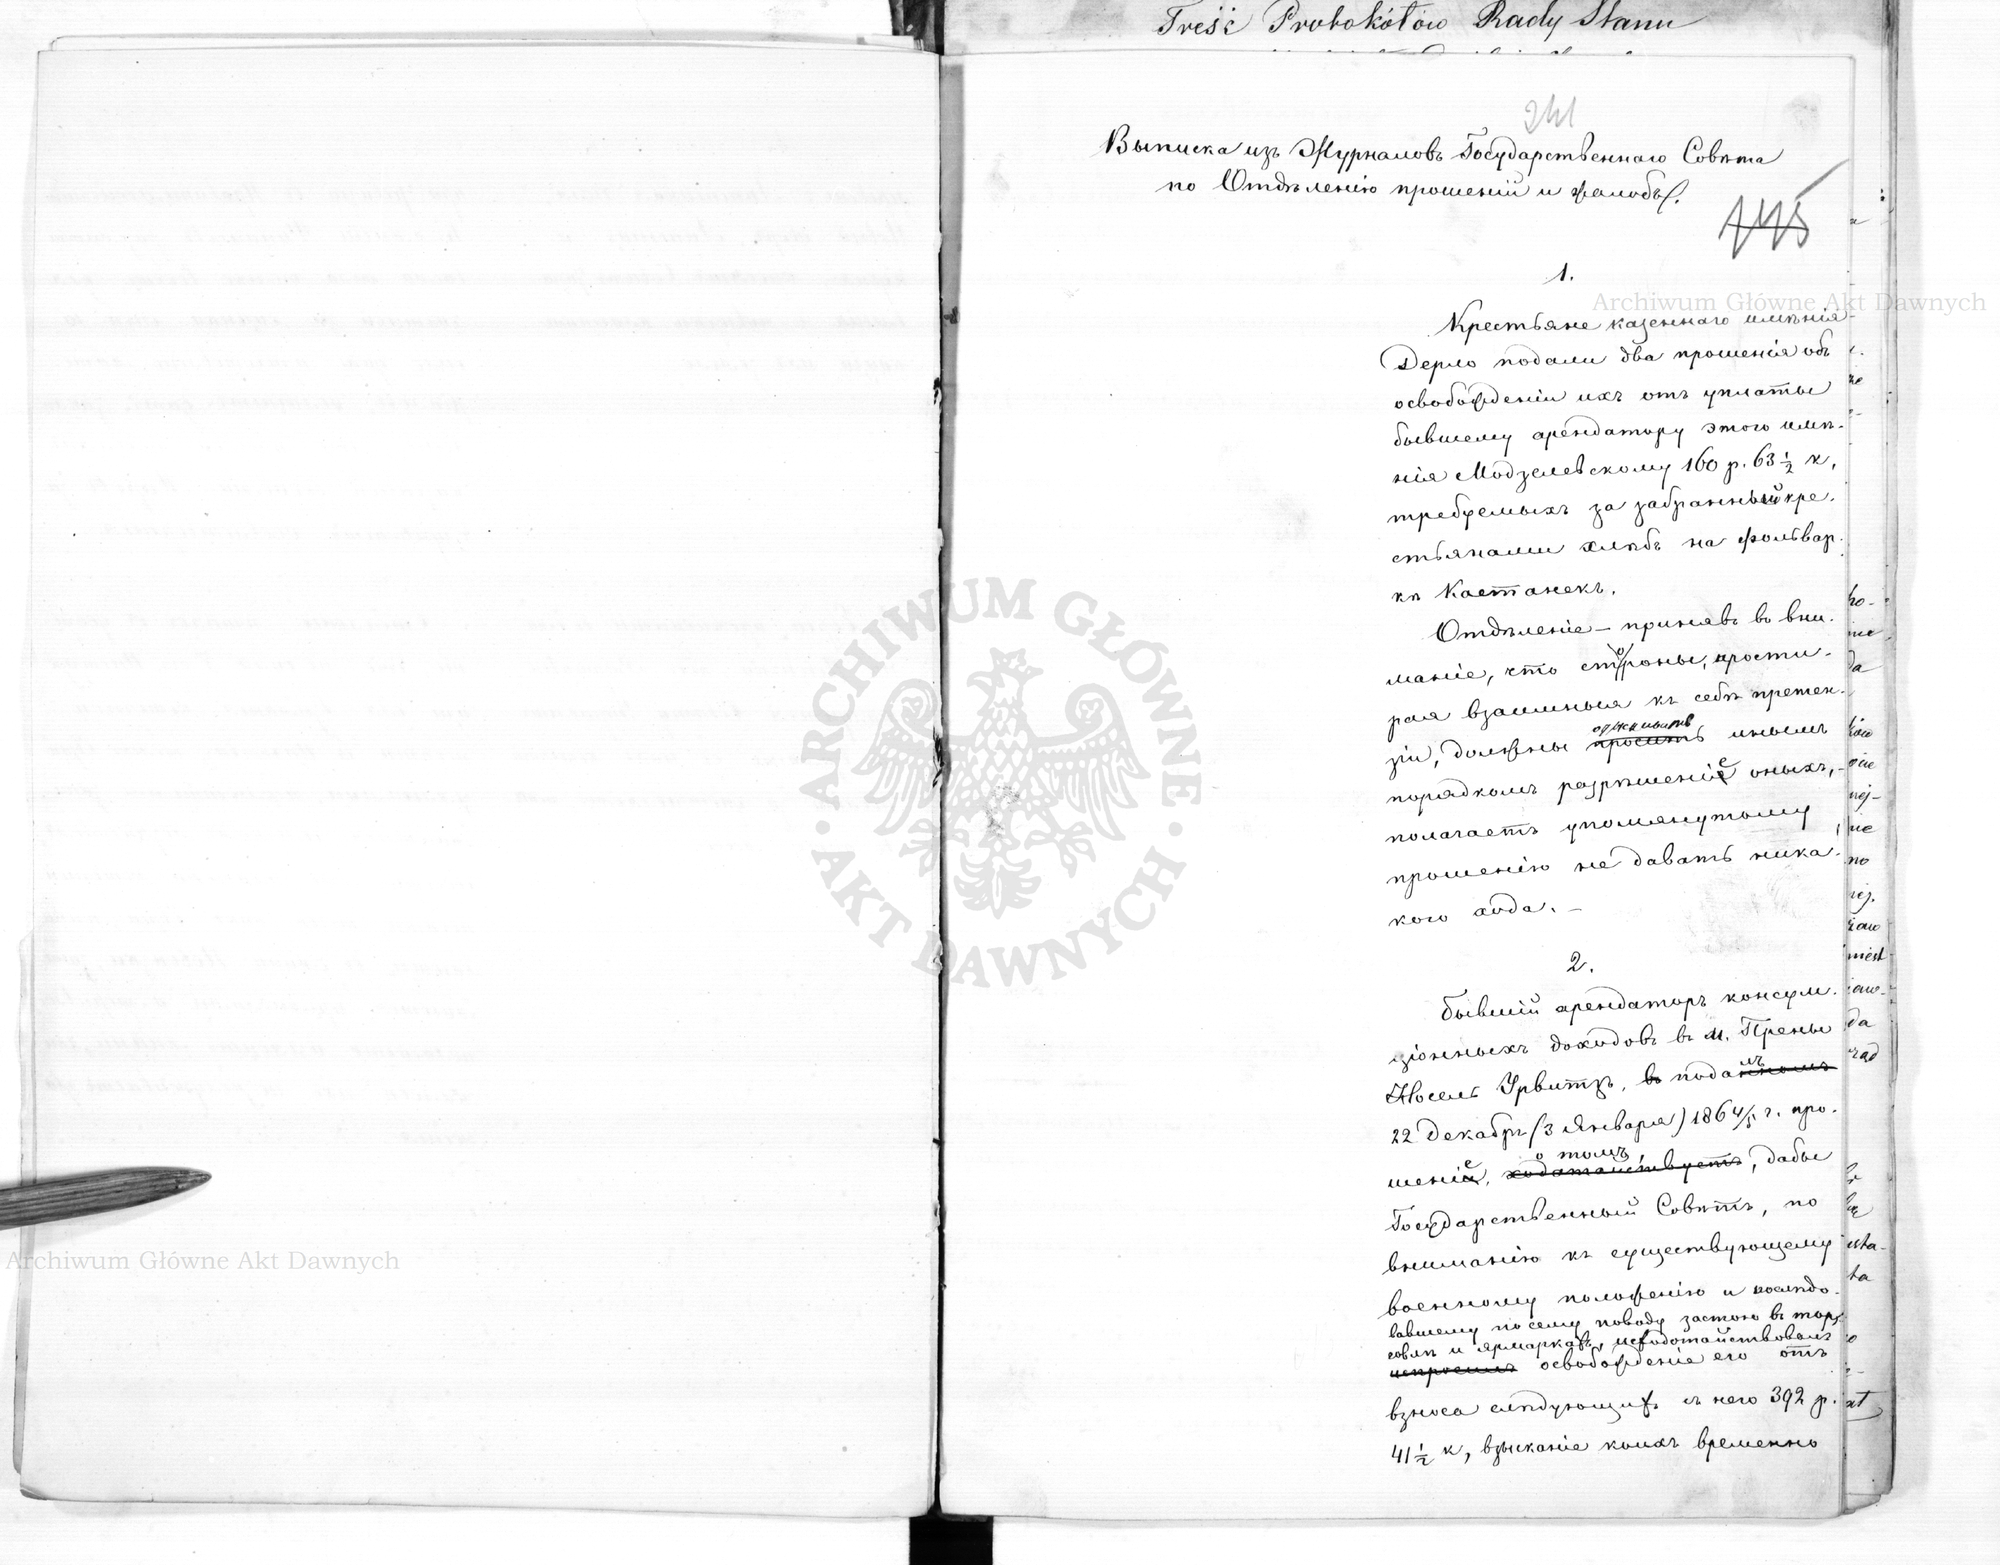 Treść Protokółów Rady Stanu
241
Выписка изъ Журналовъ Государственнаго Совѣта
по Отдѣленію прошеній и жалобъ.
445
1.
Крестьяне казеннаго имѣнія
Дерло подали два прошенія объ
освобожденіи ихъ отъ уплаты
бывшему арендатору этого имѣ-
нія Модзелевскому 160 р. 63 1/2 к,
требуемыхъ за забранный кре-
стьянами хлѣбъ на фольвар-
кѣ Костанекъ.
Отдѣленіе – принявъ во вни-
маніе, что стороны, прости-
рая взаимныя къ себѣ претен-
зіи, должны просить инымъ
порядкомъ разрѣшеніе оныхъ,
полагаетъ упомянутому
прошенію не давать ника-
кого хода. –
2.
Бывшій арендаторъ консум-
ціонныхъ доходовъ в м. Прены
Іосель Урвитзъ, въ поданномъ
22 Декабр (3 Января) 1864/5 г. про-
шеніе, о томъ, ходатайствуетъ, дабы
Государственный Совѣтъ, по
вниманію къ существующему
военному положенію и послѣдо-
вавшему по сему поводу застою въ тор-
говлѣ и ярмаркахъ, исходотайствовалъ
испросилъ освобожденіе его отъ
взноса слѣдующихъ съ него 392 р.
41 1/2 к, взысканіе коихъ временно
Archiwum Główne Akt Dawnych
Archiwum Główne Akt Dawnych
ARCHIWUM GŁÓWNE
AKT DAWNYCH